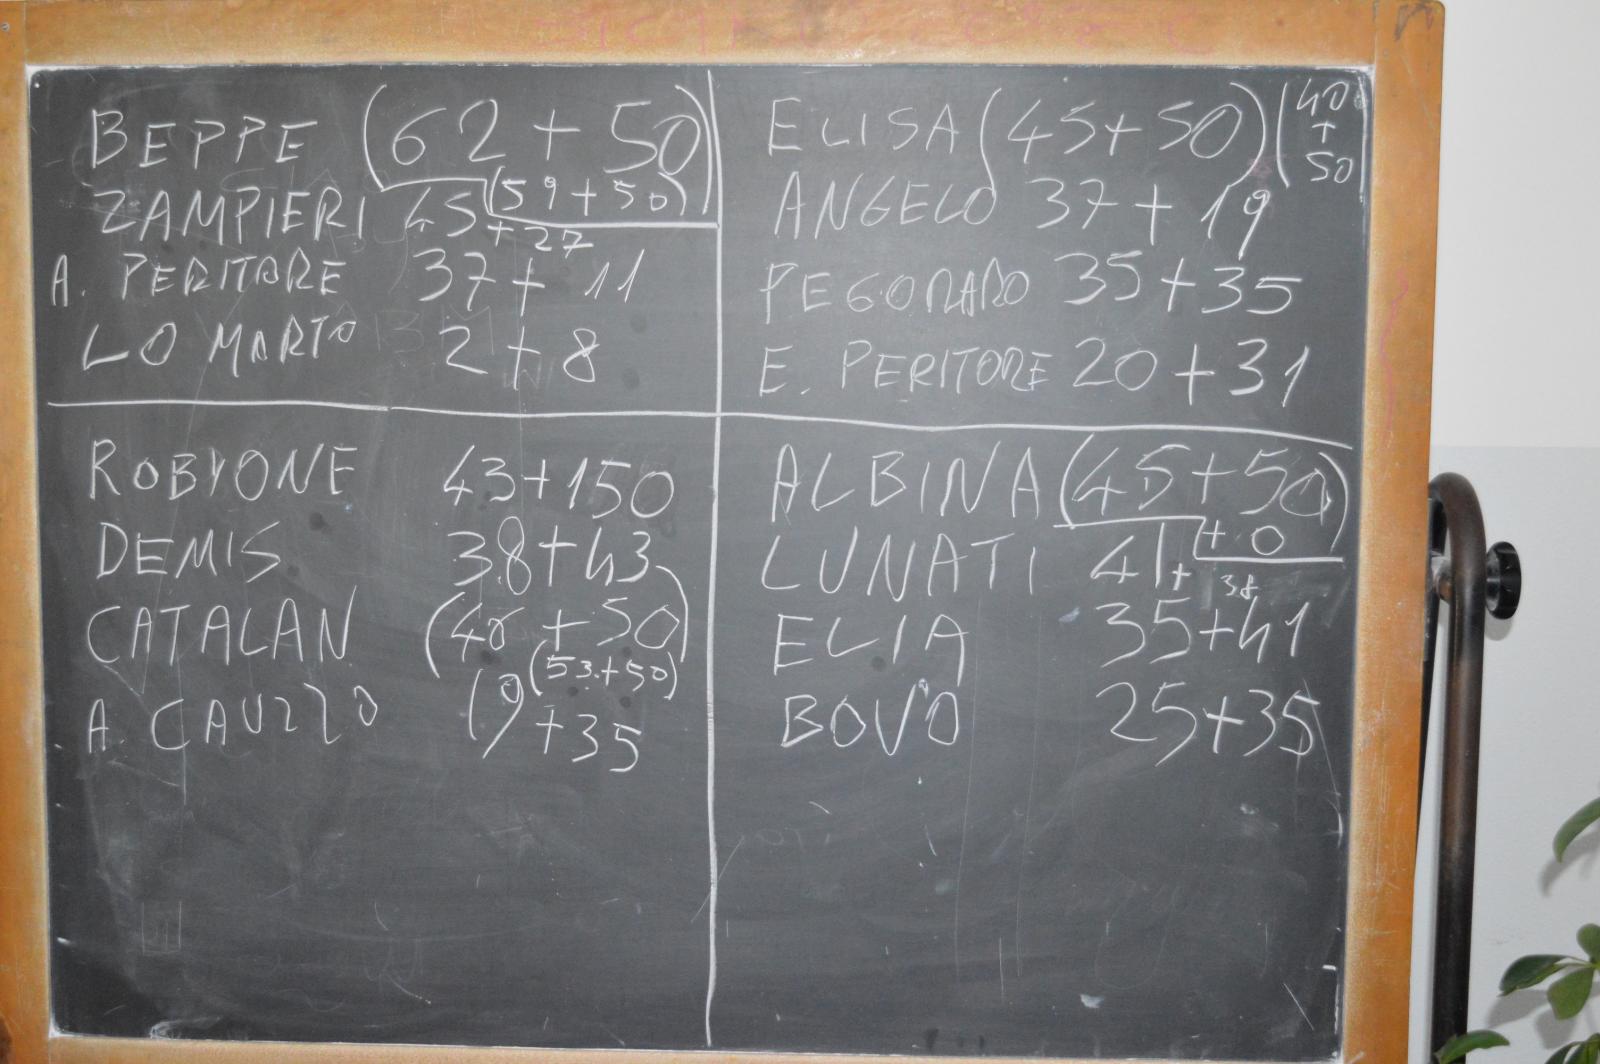 BEPPE (62 + 50)
(59 + 50)
ZAMPIERI 45 + 27
A. PERITORE 37 + 11
LO MARTO 2 + 8
ELISA (45 + 50) (40 + 50
ANGELO 37 + 19
PEGORARO 35 + 35
E. PERITORE 20 + 31
ROBYONE 43 + 150
DEMIS 38 + 43
CATALAN (46 + 50)
(53 + 50)
A. CAUZZO 19 + 35
ALBINA (45 + 50)
+ 0
LUNATI 41 + 38
ELIA 35 + 41
BOVO 25 + 35